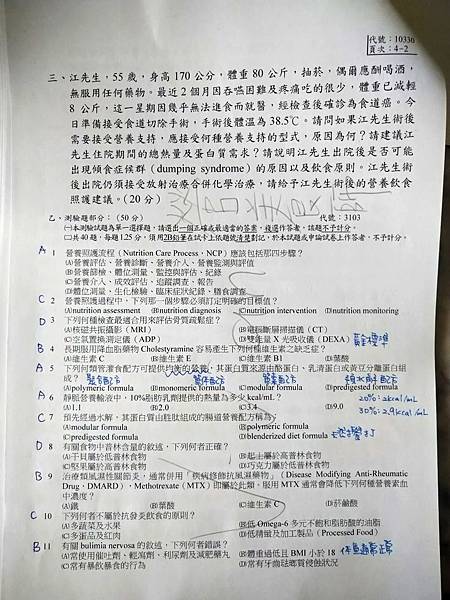 代號：10330
頁次：4－2
三、江先生，55 歲，身高 170 公分，體重 80 公斤，抽菸，偶爾應酬喝酒，
無服用任何藥物。最近 2 個月因吞嚥困難及疼痛吃的很少，體重已減輕
8 公斤，這一星期因幾乎無法進食而就醫，經檢查後確診為食道癌。今
日準備接受食道切除手術，手術後體溫為 38.5℃。請問如果江先生術後
需要接受營養支持，應接受何種營養支持的型式，原因為何？請建議江
先生住院期間的總熱量及蛋白質需求？請說明江先生出院後是否可能
出現傾食症候群（dumping syndrome）的原因以及飲食原則。江先生術
後出院仍須接受放射治療合併化學治療，請給予江先生術後的營養飲食
照護建議。（20 分）
乙、測驗題部分：（50 分） 代號：3103
㈠本測驗試題為單一選擇題，請選出一個正確或最適當的答案，複選作答者，該題不予計分。
㈡共 40 題，每題 1.25 分，須用2B鉛筆在試卡上依題號清楚劃記，於本試題或申論試卷上作答者，不予計分。
A 1 營養照護流程（Nutrition Care Process，NCP）應該包括那四步驟？
(A)營養評估、營養診斷、營養介入、營養監測與評值
(B)營養篩檢、體位測量、監控與評估、紀錄
(C)營養介入、成效評估、追蹤調查、報告
(D)體位測量、生化檢驗、臨床症狀紀錄、膳食調查
C 2 營養照護過程中，下列那一個步驟必須訂定明確的目標值？
(A)nutrition assessment (B)nutrition diagnosis (C)nutrition intervention (D)nutrition monitoring
D 3 下列何種檢查最適合用來評估骨質疏鬆症？
(A)核磁共振攝影（MRI） (B)電腦斷層掃描儀（CT）
(C)空氣置換測定儀（ADP） (D)雙能量 X 光吸收儀（DEXA） 黃金標準
B 4 長期服用降血脂藥物 Cholestyramine 容易產生下列何種維生素之缺乏症？
(A)維生素 C (B)維生素 E (C)維生素 B1 (D)葉酸
A 5 下列何類管灌食配方可提供均衡的營養，其蛋白質來源由酪蛋白、乳清蛋白或黃豆分離蛋白組成？
(A)polymeric formula (B)monomeric formula (C)modular formula (D)predigested formula
A 6 靜脈營養輸液中，10%脂肪乳劑提供的熱量為多少 kcal/mL？
(A)1.1 (B)2.0 (C)3.4 (D)9.0
20%：2kcal/mL
30%：2.9kcal/mL
C 7 預先經過水解，其蛋白質由胜肽組成的腸道營養配方稱為？
(A)modular formula (B)polymeric formula
(C)predigested formula (D)blenderized diet formula
D 8 有關食物中普林含量的敘述，下列何者正確？
(A)干貝屬於低普林食物 (B)起士屬於高普林食物
(C)堅果屬於高普林食物 (D)巧克力屬於低普林食物
B 9 治療類風濕性關節炎，通常併用「疾病修飾抗風濕藥物」（Disease Modifying Anti-Rheumatic
Drug，DMARD），Methotrexate（MTX）即屬於此類，服用 MTX 通常會降低下列何種營養素血
中濃度？
(A)鐵 (B)葉酸 (C)維生素 C (D)菸鹼酸
C 10 下列何者不屬於抗發炎飲食的原則？
(A)多蔬菜及水果 (B)低 Omega-6 多元不飽和脂肪酸的油脂
(C)多蛋品及紅肉 (D)低精緻及加工製品（Processed Food）
B 11 有關 bulimia nervosa 的敘述，下列何者錯誤？
(A)常使用催吐劑、輕瀉劑、利尿劑及減肥藥丸 (B)體重過低且 BMI 小於 18 體重通常正常
(C)常有暴飲暴食的行為 (D)常有牙齒琺瑯質侵蝕狀況